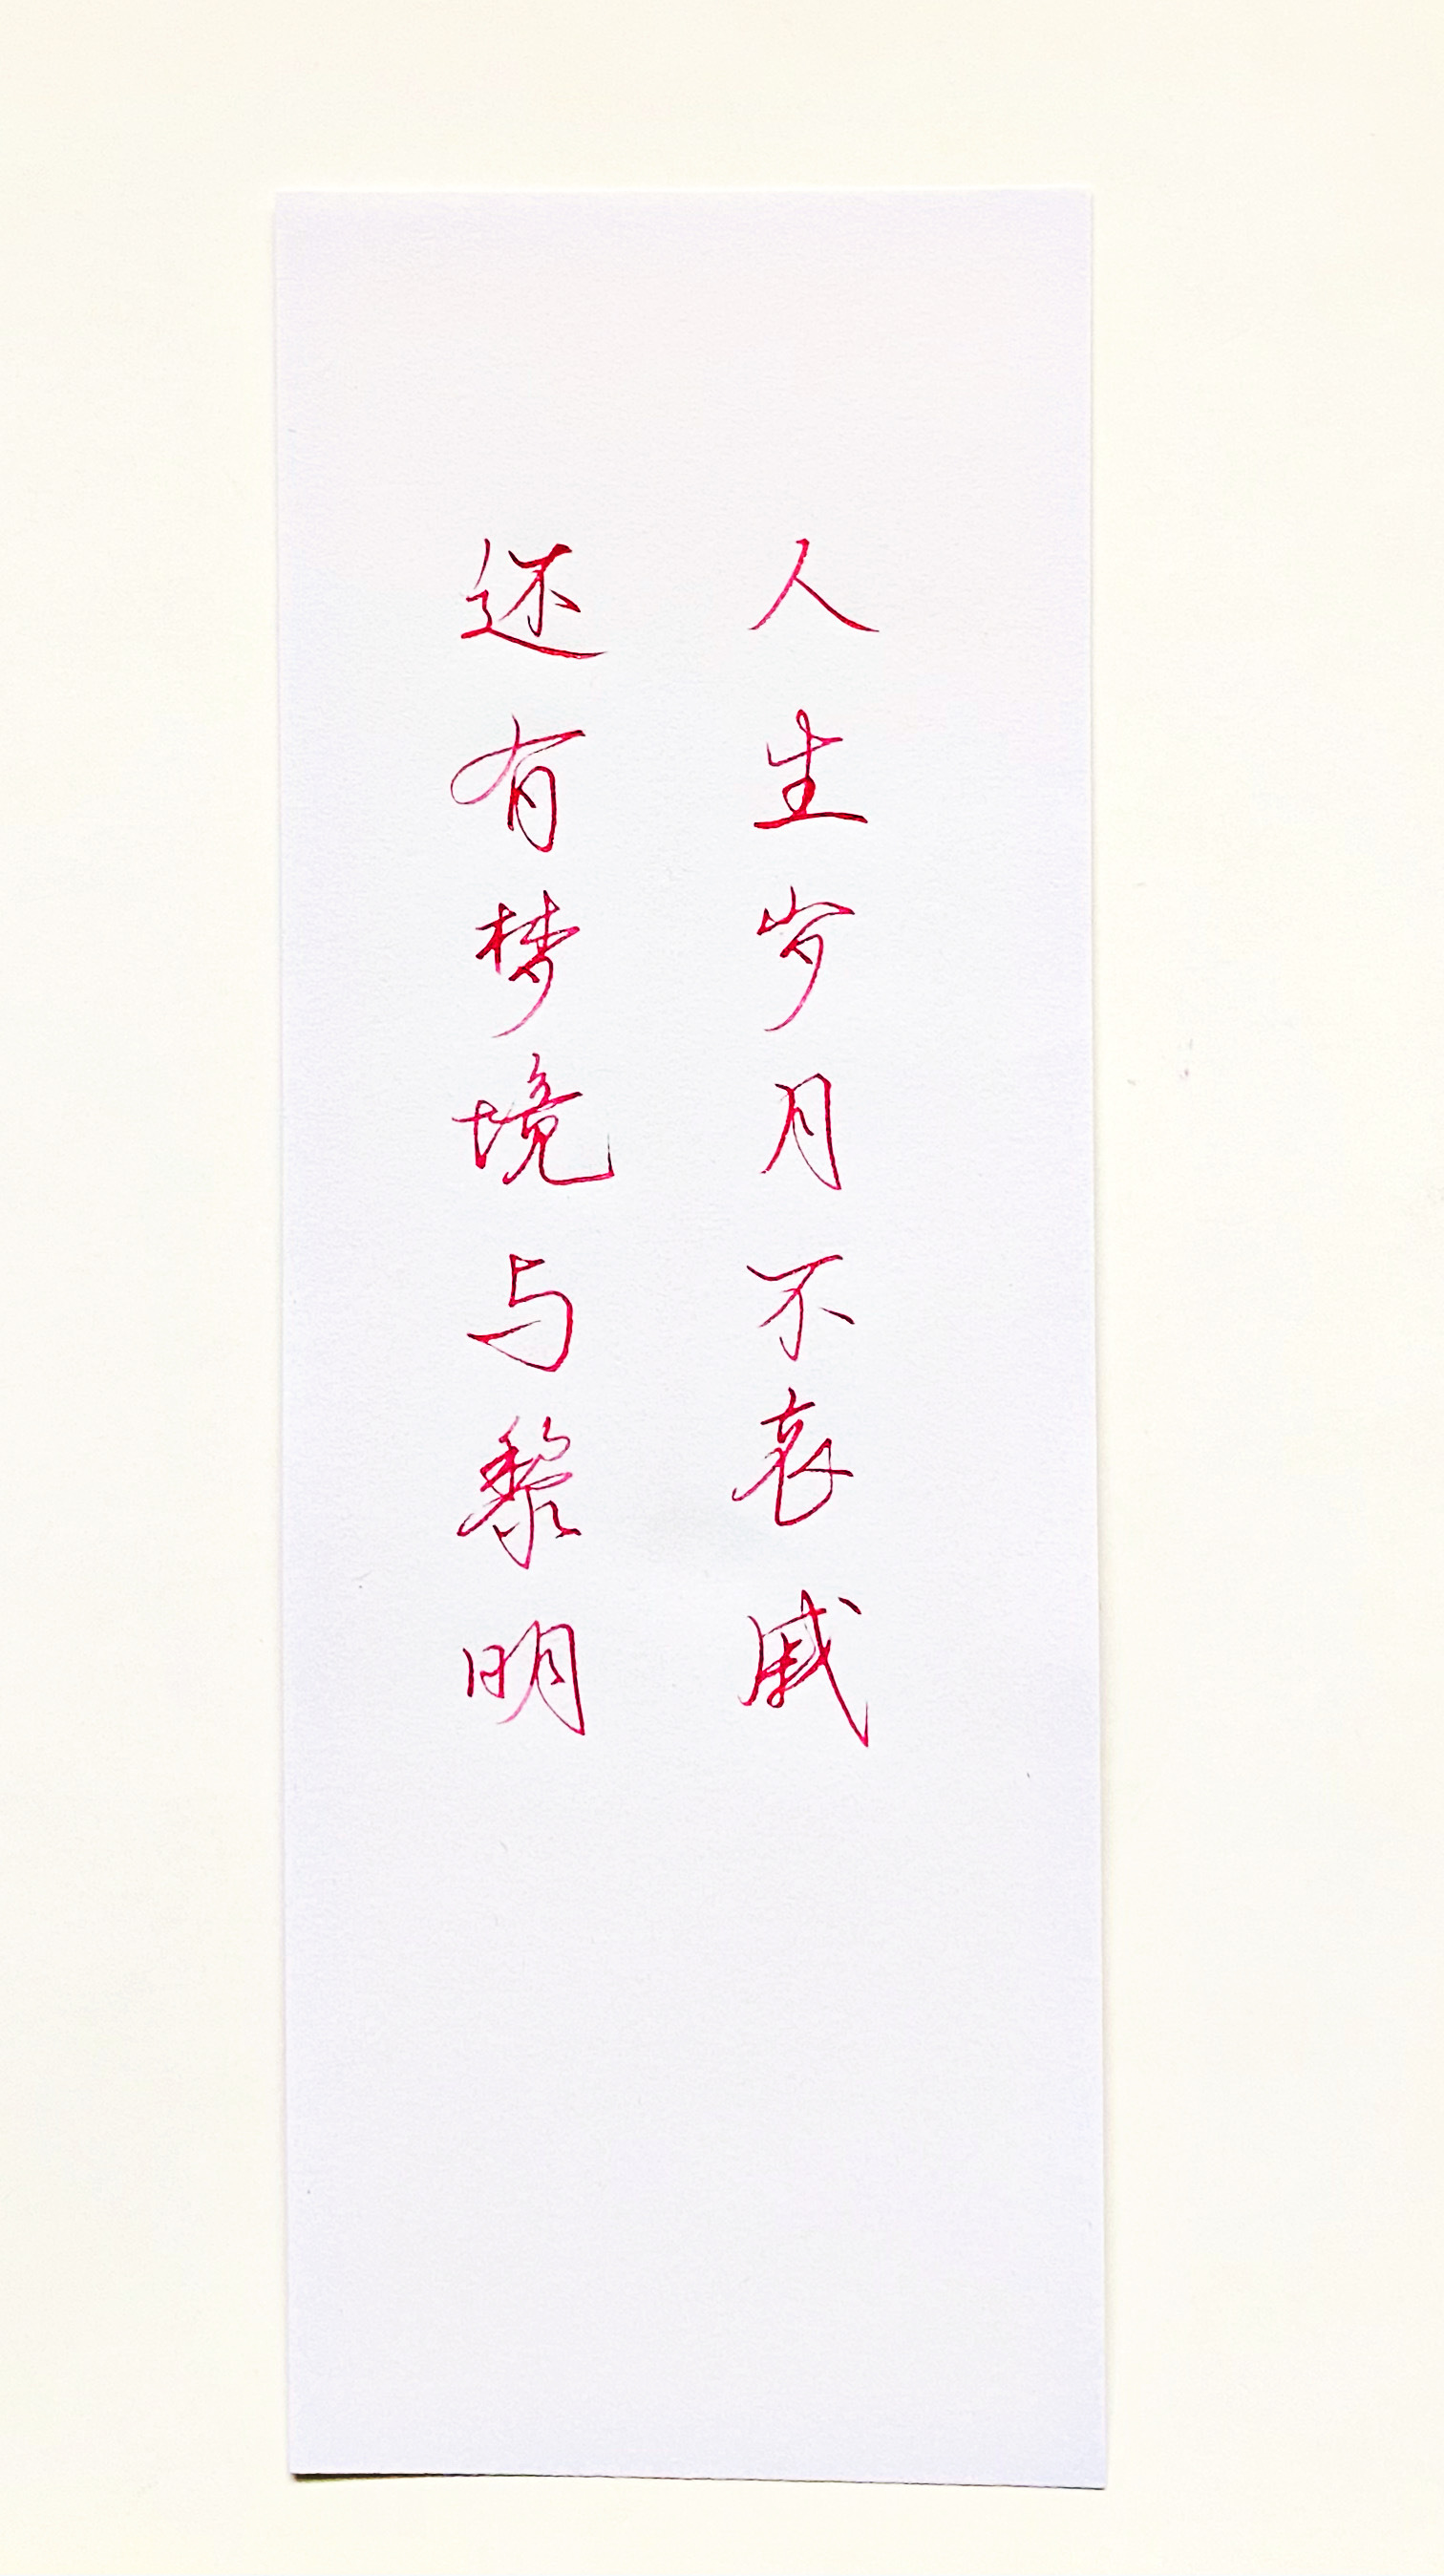 人生岁月不哀戚
还有梦境与黎明